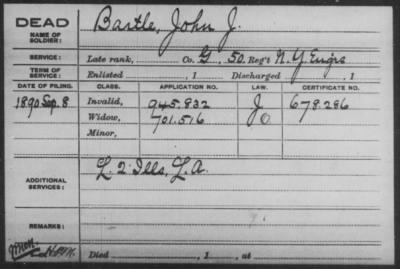 DEAD
NAME OF SOLDIER: Bastle, John J.
SERVICE: Late rank, Co. G, 50 Reg't N.Y. Engrs
TERM OF SERVICE: Enlisted , 1 Discharged , 1
DATE OF FILING. CLASS. APPLICATION NO. LAW. CERTIFICATE NO.
1890 Sep. 8 Invalid, 945.832 J 678.286
Widow, 701.516 O
Minor,
ADDITIONAL SERVICES: L. 2 Ills, L.A.
REMARKS:
Died , 1 , at